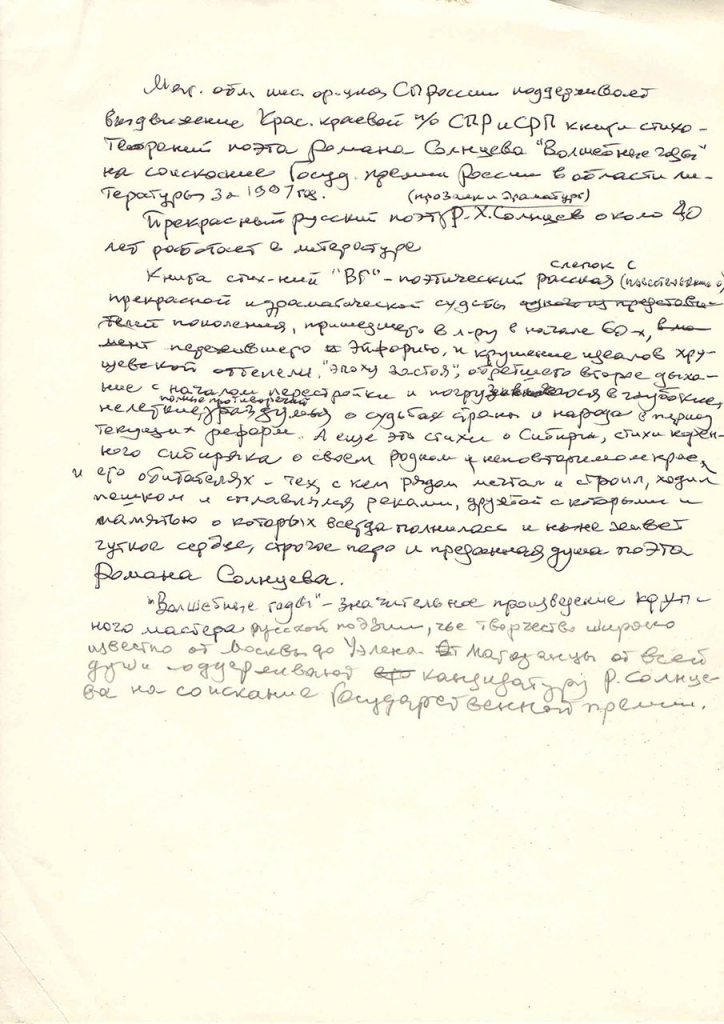 Маг. обл. пис. орг-ция СП России поддерживает
выдвижение Крас. краевой п/о СПР и СРП книги стихо-
творений поэта Романа Солнцева "Волшебные годы"
на соискание Госуд. премии России в области ли-
тературы за 1997 год.
(прозаик и драматург)
Прекрасный русский поэт Р.Х. Солнцев около 40
лет работает в литературе
слепок с
Книга стих-ний "ВГ" - поэтический рассказ
прекрасной и драматической судьбы одного из представи-
телей поколения, пришедшего в л-ру в начале 60-х,
пережившего эйфорию, и крушение идеалов хру-
щевской оттепели, "эпоху застоя", обретшего второе дыха-
ние с началом перестройки и погрузившегося в глубокие,
полные противоречий
нелегкие раздумья о судьбах страны и народа в период
текущих реформ. А еще это стихи о Сибири, стихи корен-
ного сибиряка о своем родном и неповторимом крае,
и его обитателях - тех, с кем рядом мечтал и строил, ходил
пешком и сплавлялся реками, дружбой с которыми и
памятью о которых всегда полнилась и живет
чуткое сердце, строгое перо и преданная душа поэта
Романа Солнцева.
"Волшебные годы" - значительное произведение круп-
ного мастера русской поэзии, чье творчество широко
известно от Москвы до Уэлена. Магаданцы от всей
души поддерживают его кандидатуру Р. Солнце-
ва на соискание Государственной премии.